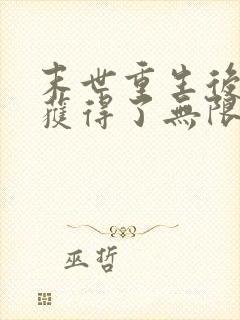 末世重生後
獲得了無限
巫哲